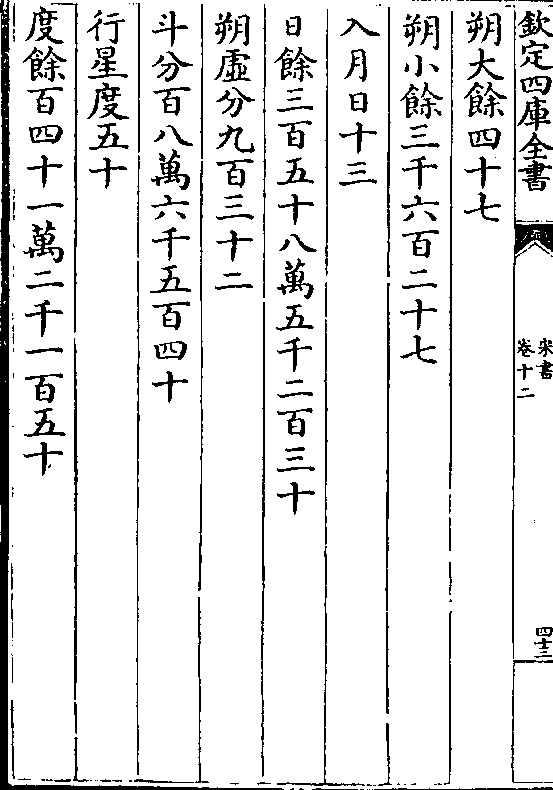 欽定四庫全書
宋書
卷十二
四十三
朔大餘四十七
朔小餘三千六百二十七
入月日十三
日餘三百五十八萬五千二百三十
朔虛分九百三十二
斗分百八萬六千五百四十
行星度五十
度餘百四十一萬二千一百五十